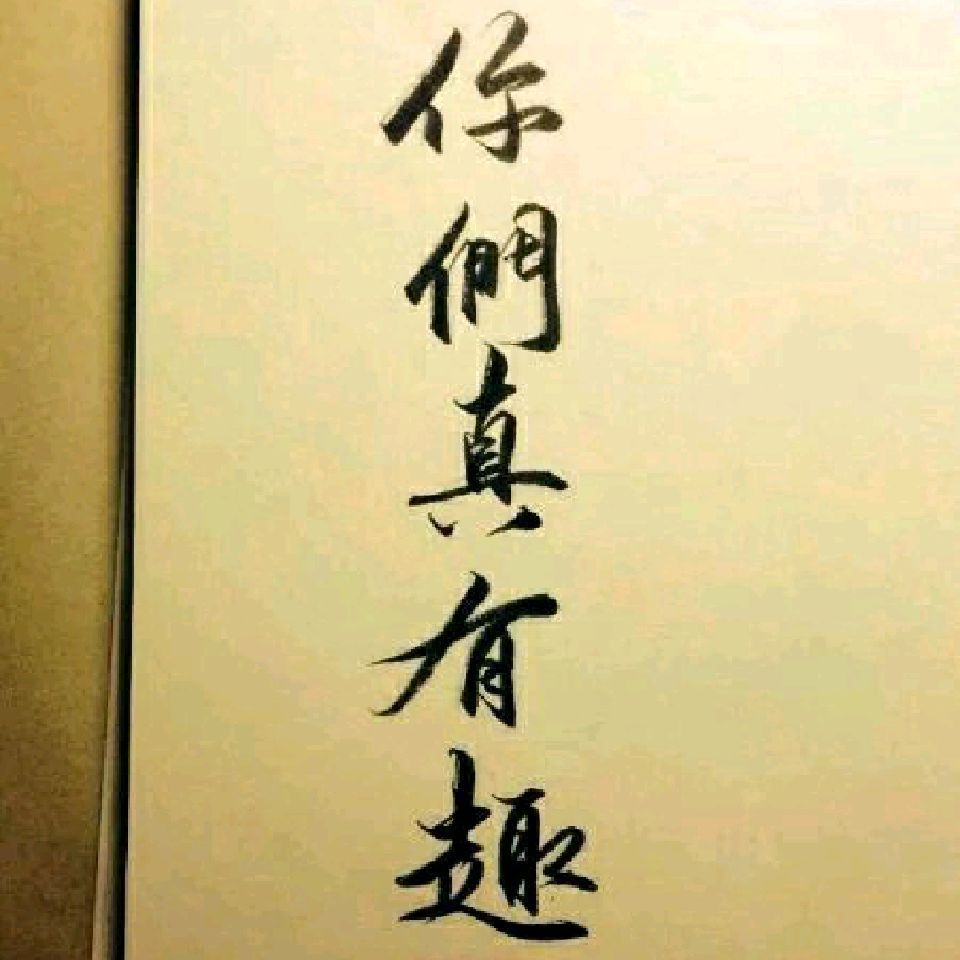 你們真有趣